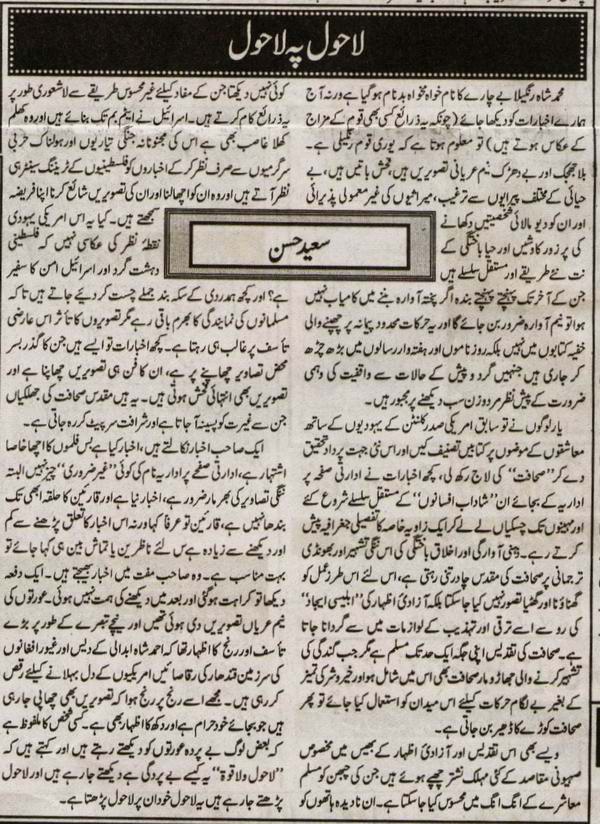 لاحول پہ لاحول
سعید حسن
محمد شاہ رنگیلا بے چارے کا نام خواہ مخواہ بدنام ہو گیا ہے ورنہ آج
ہمارے اخبارات کو دیکھا جائے (چونکہ یہ ذرائع کسی بھی قوم کے مزاج
کے عکاس ہوتے ہیں) تو معلوم ہوتا ہے کہ پوری قوم رنگیلی ہے۔
بلا جھجک اور بے دھڑک نیم عریانی تصویریں ہیں، فحش باتیں ہیں، بے
حیائی کے مختلف پیرایوں سے ترغیب، میراثیوں کی غیر معمولی پذیرائی
اور ان کو دیو مالائی شخصیتیں دکھانے
کی پر زور کاوشیں اور حیا باختگی کے
نت نئے طریقے اور مستقل سلسلے ہیں
جن کے آخر تک پہنچتے پہنچتے بندہ اگر پختہ آوارہ بننے میں کامیاب نہیں
ہوا تو نیم آوارہ ضرور بن جائے گا اور یہ حرکات محدود پیمانہ پر چھپنے والی
خفیہ کتابوں میں نہیں بلکہ روزناموں اور ہفتہ وار رسالوں میں بڑھ چڑھ
کر جاری ہیں جنہیں گرد و پیش کے حالات سے واقفیت کی وہمی
ضرورت کے پیش نظر مرد و زن سب دیکھنے پر مجبور ہیں۔
یار لوگوں نے تو سابق امریکی صدر کلنٹن کے یہودیوں کے ساتھ
معاشقوں کے موضوں پر کتابیں تصنیف کیں اور اس نئی جہت پر داد تحقیق
دے کر ”صحافت“ کی لاج رکھ لی، کچھ اخبارات نے ادارتی صفحہ پر
اداریہ کے بجائے ان ”شاداب افسانوں“ کے مستقل سلسلے شروع کئے
اور مہینوں تک چسکیاں لے لے کر ایک زاویہ خاصہ کا تفصیلی جغرافیہ پیش
کرتے رہے۔ ذہنی آوارگی اور اخلاق باختگی کی اس ننگی تشہیر اور بھونڈی
ترجمانی پر صحافت کی مقدس چادر تنی رہتی ہے، اس لئے اس طرز عمل کو
گھناؤنا اور گھٹیا تصور نہیں کیا جا سکتا بلکہ آزادیٔ اظہار کی ”ابلیسی ایجاد“
کی رو سے اسے ترقی اور تہذیب کے لوازمات میں سے گردانا جاتا
ہے۔ صحافت کی تقدیس اپنی جگہ ایک حد تک مسلم ہے مگر جب گندگی کی
تشہیر کرنے والی جھاڑو مار صحافت بھی اس میں شامل ہو اور خیر و شر کی تمیز
کے بغیر بے لگام حرکات کیلئے اس میدان کو استعمال کیا جائے تو پھر
صحافت کوڑے کا ڈھیر بن جاتی ہے۔
ویسے بھی اس تقدیس اور آزادیٔ اظہار کے بھیس میں مخصوص
صیہونی مقاصد کے کئی مہلک نشتر چھپے ہوئے ہیں جن کی چبھن کو مسلم
معاشرے کے انگ انگ میں محسوس کیا جا سکتا ہے۔ ان نادیدہ ہاتھوں کو
کوئی نہیں دیکھتا جن کے مفاد کیلئے غیر محسوس طریقے سے لاشعوری طور پر
یہ ذرائع کام کرتے ہیں۔ اسرائیل نے ایٹم بم تک بنائے ہیں اور وہ کھلم
کھلا غاصب بھی ہے اس کی مجنونانہ جنگی تیاریوں اور ہولناک حربی
سرگرمیوں سے صرف نظر کر کے اخباروں کو فلسطینیوں کے ٹریننگ سینٹر ہی
نظر آتے ہیں اور وہ ان کو اچھالنا اور ان کی تصویریں شائع کرنا اپنا فریضہ
سمجھتے ہیں۔ کیا یہ اس امریکی یہودی
نقطۂ نظر کی عکاسی نہیں کہ فلسطینی
دہشت گرد اور اسرائیل امن کا سفیر
ہے؟ اور کچھ ہمدردی کے سکہ بند جملے چست کر دیئے جاتے ہیں تاکہ
مسلمانوں کی نمایندگی کا بھرم باقی رہے مگر تصویروں کا تأثر اس عارضی
تاسف پر غالب ہی رہتا ہے۔ کچھ اخبارات تو ایسے ہیں جن کا گذر بسر
محض تصاویر چھاپنے پر ہے، ان کا فن ہی تصویریں چھاپنا ہے اور
تصویریں بھی انتہائی فحش ہوتی ہیں۔ یہ ہیں مقدس صحافت کی جھلکیاں
جن سے غیرت کو پسینہ آ جاتا ہے اور شرافت سر پیٹ کر رہ جاتی ہے۔
ایک صاحب اخبار نکالتے ہیں، اخبار کیا ہے بس فلموں کا اچھا خاصا
اشتہار ہے، ادارتی صفحے پر اداریہ نام کی کوئی ”غیر ضروری“ چیز نہیں البتہ
ننگی تصاویر کی بھرمار ضرور ہے، اخبار نیا ہے اور قارئین کا حلقہ ابھی تک
بندھا نہیں ہے، قارئین تو عرفاً کہا ورنہ اس اخبار کا تعلق پڑھنے سے کم
اور دیکھنے سے زیادہ ہے اس لئے ناظرین یا تماش بین ہی کہا جائے تو
بہت مناسب ہے۔ وہ صاحب مفت میں اخبار بھیجتے ہیں۔ ایک دفعہ
دیکھا تو کراہت ہو گئی اور بعد میں دیکھنے کی ہمت نہیں ہوئی۔ عورتوں کی
نیم عریاں تصویریں دی ہوئی تھیں اور نیچے تبصرے کے طور پر بڑے
تاسف اور رنج کا اظہار تھا کہ احمد شاہ ابدالی کے دیس اور غیور افغانوں
کی سرزمین قندھار کی رقاصائیں امریکیوں کے دل بہلانے کیلئے رقص
کر رہی ہیں۔ مجھے اسے رنج پر رنج ہوا کہ تصویریں بھی چھاپی جا رہی
ہیں جو بجائے خود حرام ہے اور دکھ کا اظہار بھی ہے۔ کسی شخص کا ملفوظ ہے
کہ بعض لوگ بے پردہ عورتوں کو دیکھتے رہتے ہیں اور کہتے ہیں کہ
”لاحول ولا قوۃ“ یہ کیسے بے پردگی ہے دیکھتے جا رہے ہیں اور لاحول
پڑھتے جا رہے ہیں یہ لاحول خود ان پر لاحول پڑھتا ہے۔